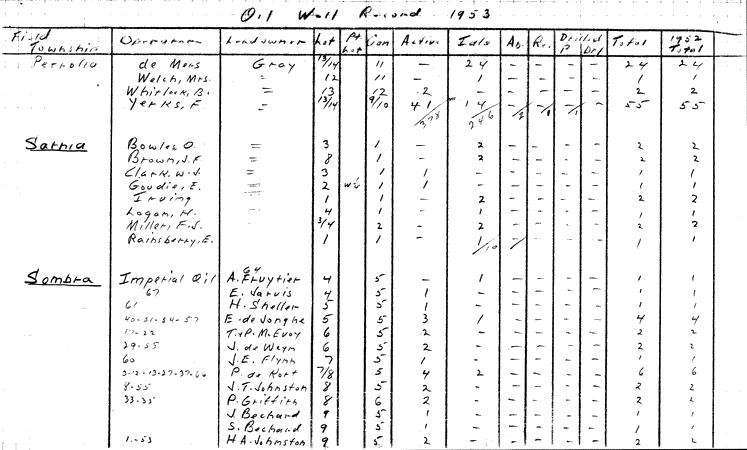 Oil Well Record 1953
Field Township Operator Landowner Lot Pt Lot Con Active Idle Ab. Re. Drilled P Dry Total 1952 Total
Petrolia de Mers Gray 13/14 11 - 24 - - - - 24 24
Welch, Mrs. " 12 11 - 1 - - - - 1 1
Whitlock, B. " 13 12 2 - - - - - 2 2
Yerks, F. " 13/14 9/10 41 14 - - - - 55 55
378 246
Sarnia Bowles O. = 3 1 - 2 - - - - 2 2
Brown, J.F. = 8 1 - 2 - - - - 2 2
Clark, W.J. = 3 1 1 - - - - - 1 1
Goudie, E. = 2 W½ 1 1 - - - - - 1 1
Irving 1 1 - 2 - - - - 2 2
Logan, H. 4 1 - 1 - - - - 1 1
Miller, F.J. 3/4 2 - 2 - - - - 2 2
Rainsberry, E. 1 1 - 1 - - - 1 1
10
Sombra Imperial Oil A. Fruytier 64 4 5 - 1 - - - - 1 1
67 E. Jarvis 4 5 1 - - - - - 1 1
61 H. Sheller 5 5 1 - - - - - 1 1
40-51-54-57 E. de Jonghe 5 5 3 1 - - - - 4 4
17-22 T.&P. McEvoy 6 5 2 - - - - - 2 2
29-55 J. de Weyn 6 5 2 - - - - - 2 2
60 J.E. Flynn 7 5 1 - - - - - 1 1
P. de Kort 7/8 5 4 2 - - - - 6 6
8-55 J.T. Johnston 8 5 2 - - - - - 2 2
33-35 P. Griffith 8 6 2 - - - - - 2 2
J. Bechard 9 5 1 - - - - - 1 1
S. Bechard 9 5 1 - - - - - 1 1
1-53 H.A. Johnston 9 5 2 - - - - - 2 2